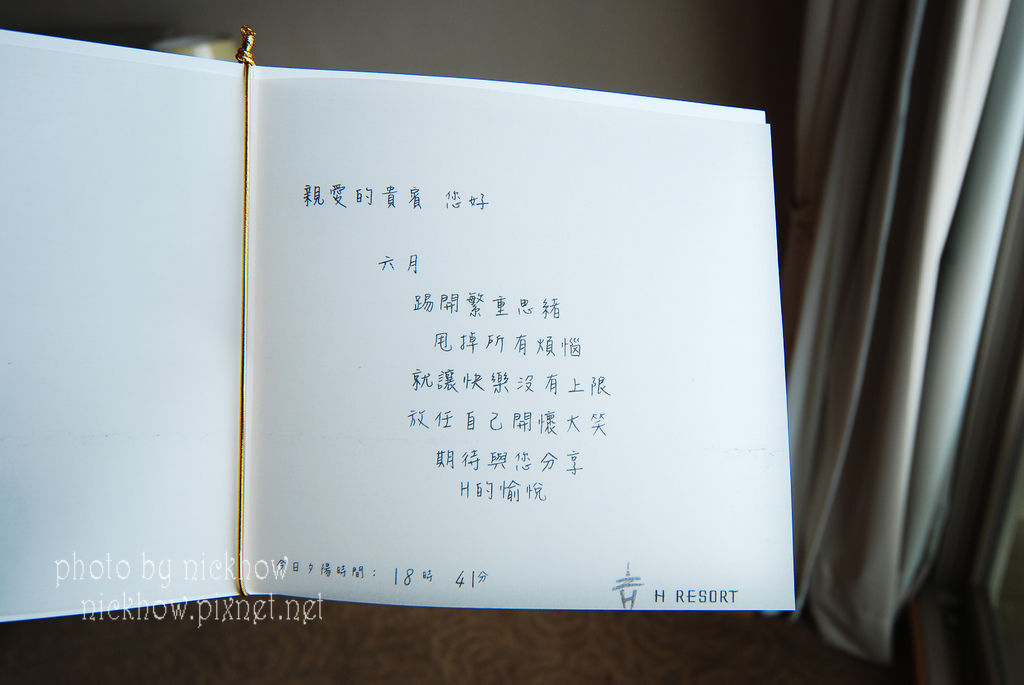 親愛的貴賓 您好
六月
踢開繁重思緒
甩掉所有煩惱
就讓快樂沒有上限
放任自己開懷大笑
期待與您分享
H的愉悅
今日夕陽時間：18時 41分
H RESORT
photo by nickhow
nickhow.pixnet.net